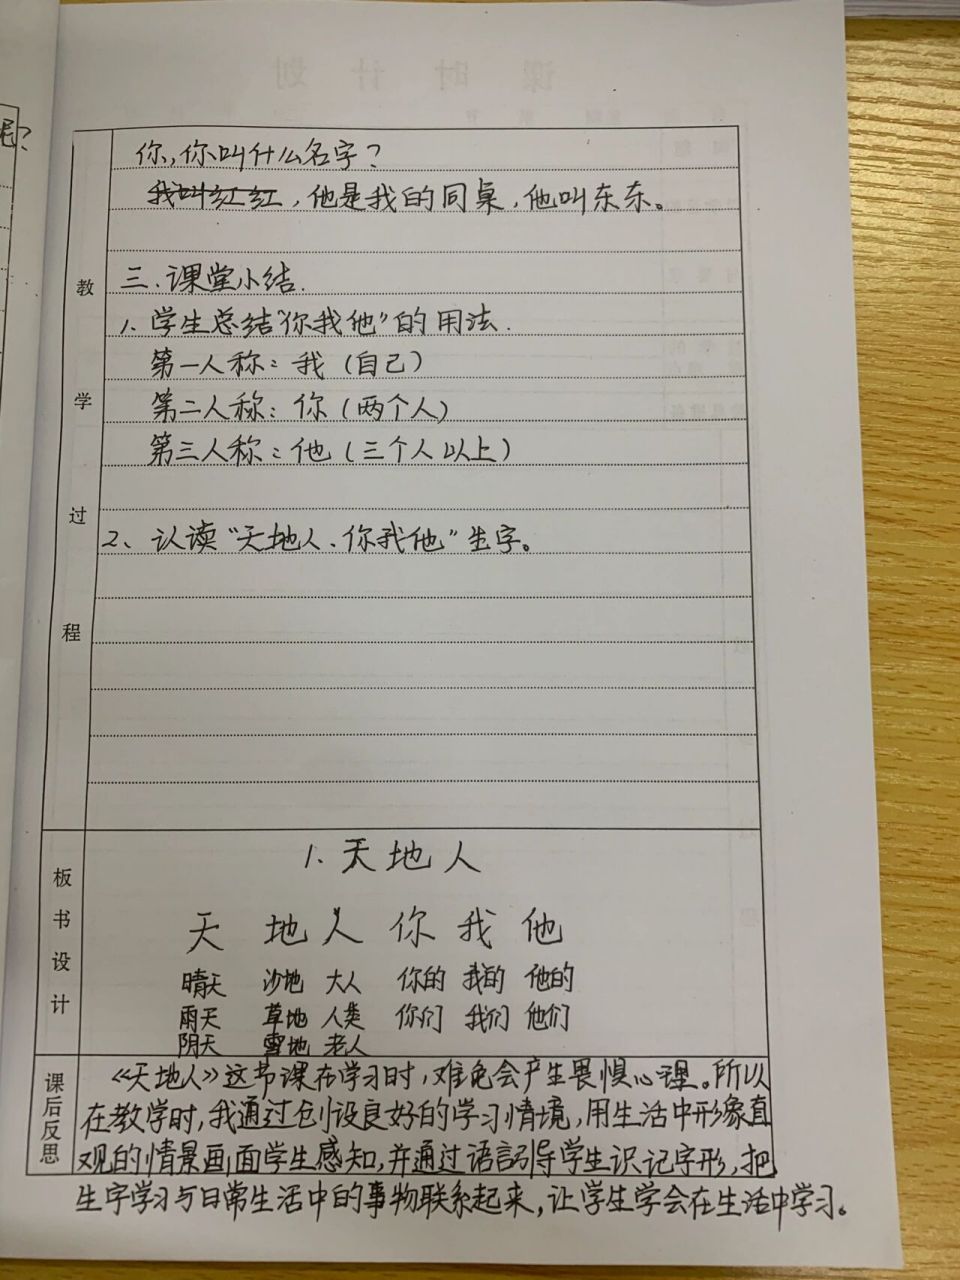 呢?
你,你叫什么名字?
我叫红红,他是我的同桌,他叫东东。
教学过程
三.课堂小结.
1.学生总结“你我他”的用法.
第一人称:我(自己)
第二人称:你(两个人)
第三人称:他(三个人以上)
2、认读“天地人、你我他”生字。
板书设计
1.天地人
天 地 人 你 我 他
晴天 沙地 大人 你的 我的 他的
雨天 草地 人类 你们 我们 他们
阴天 雪地 老人
课后反思
《天地人》这节课在学习时,难免会产生畏惧心理。所以
在教学时,我通过创设良好的学习情境,用生活中形象直
观的情景画面学生感知,并通过语言引导学生识记字形,把
生字学习与日常生活中的事物联系起来,让学生学会在生活中学习。
课时计划